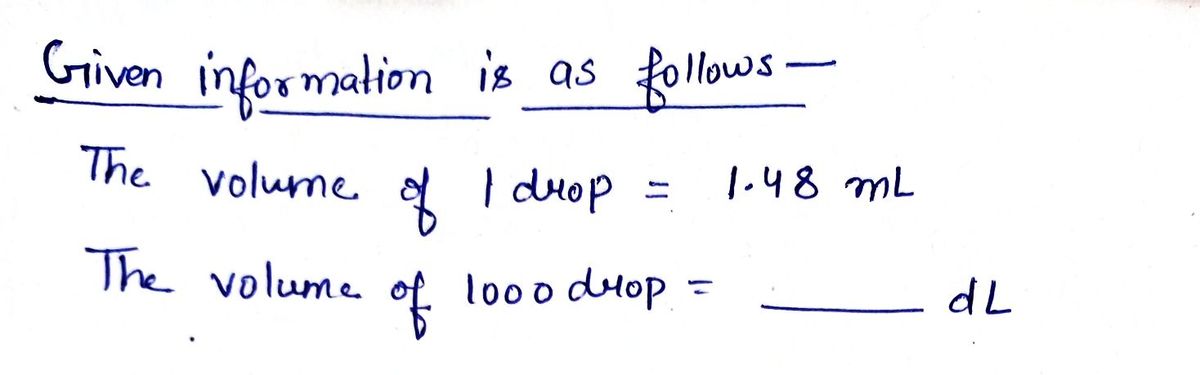 Given information is as follows —
The volume of 1 drop = 1.48 mL
The volume of 1000 drop = ______ dL